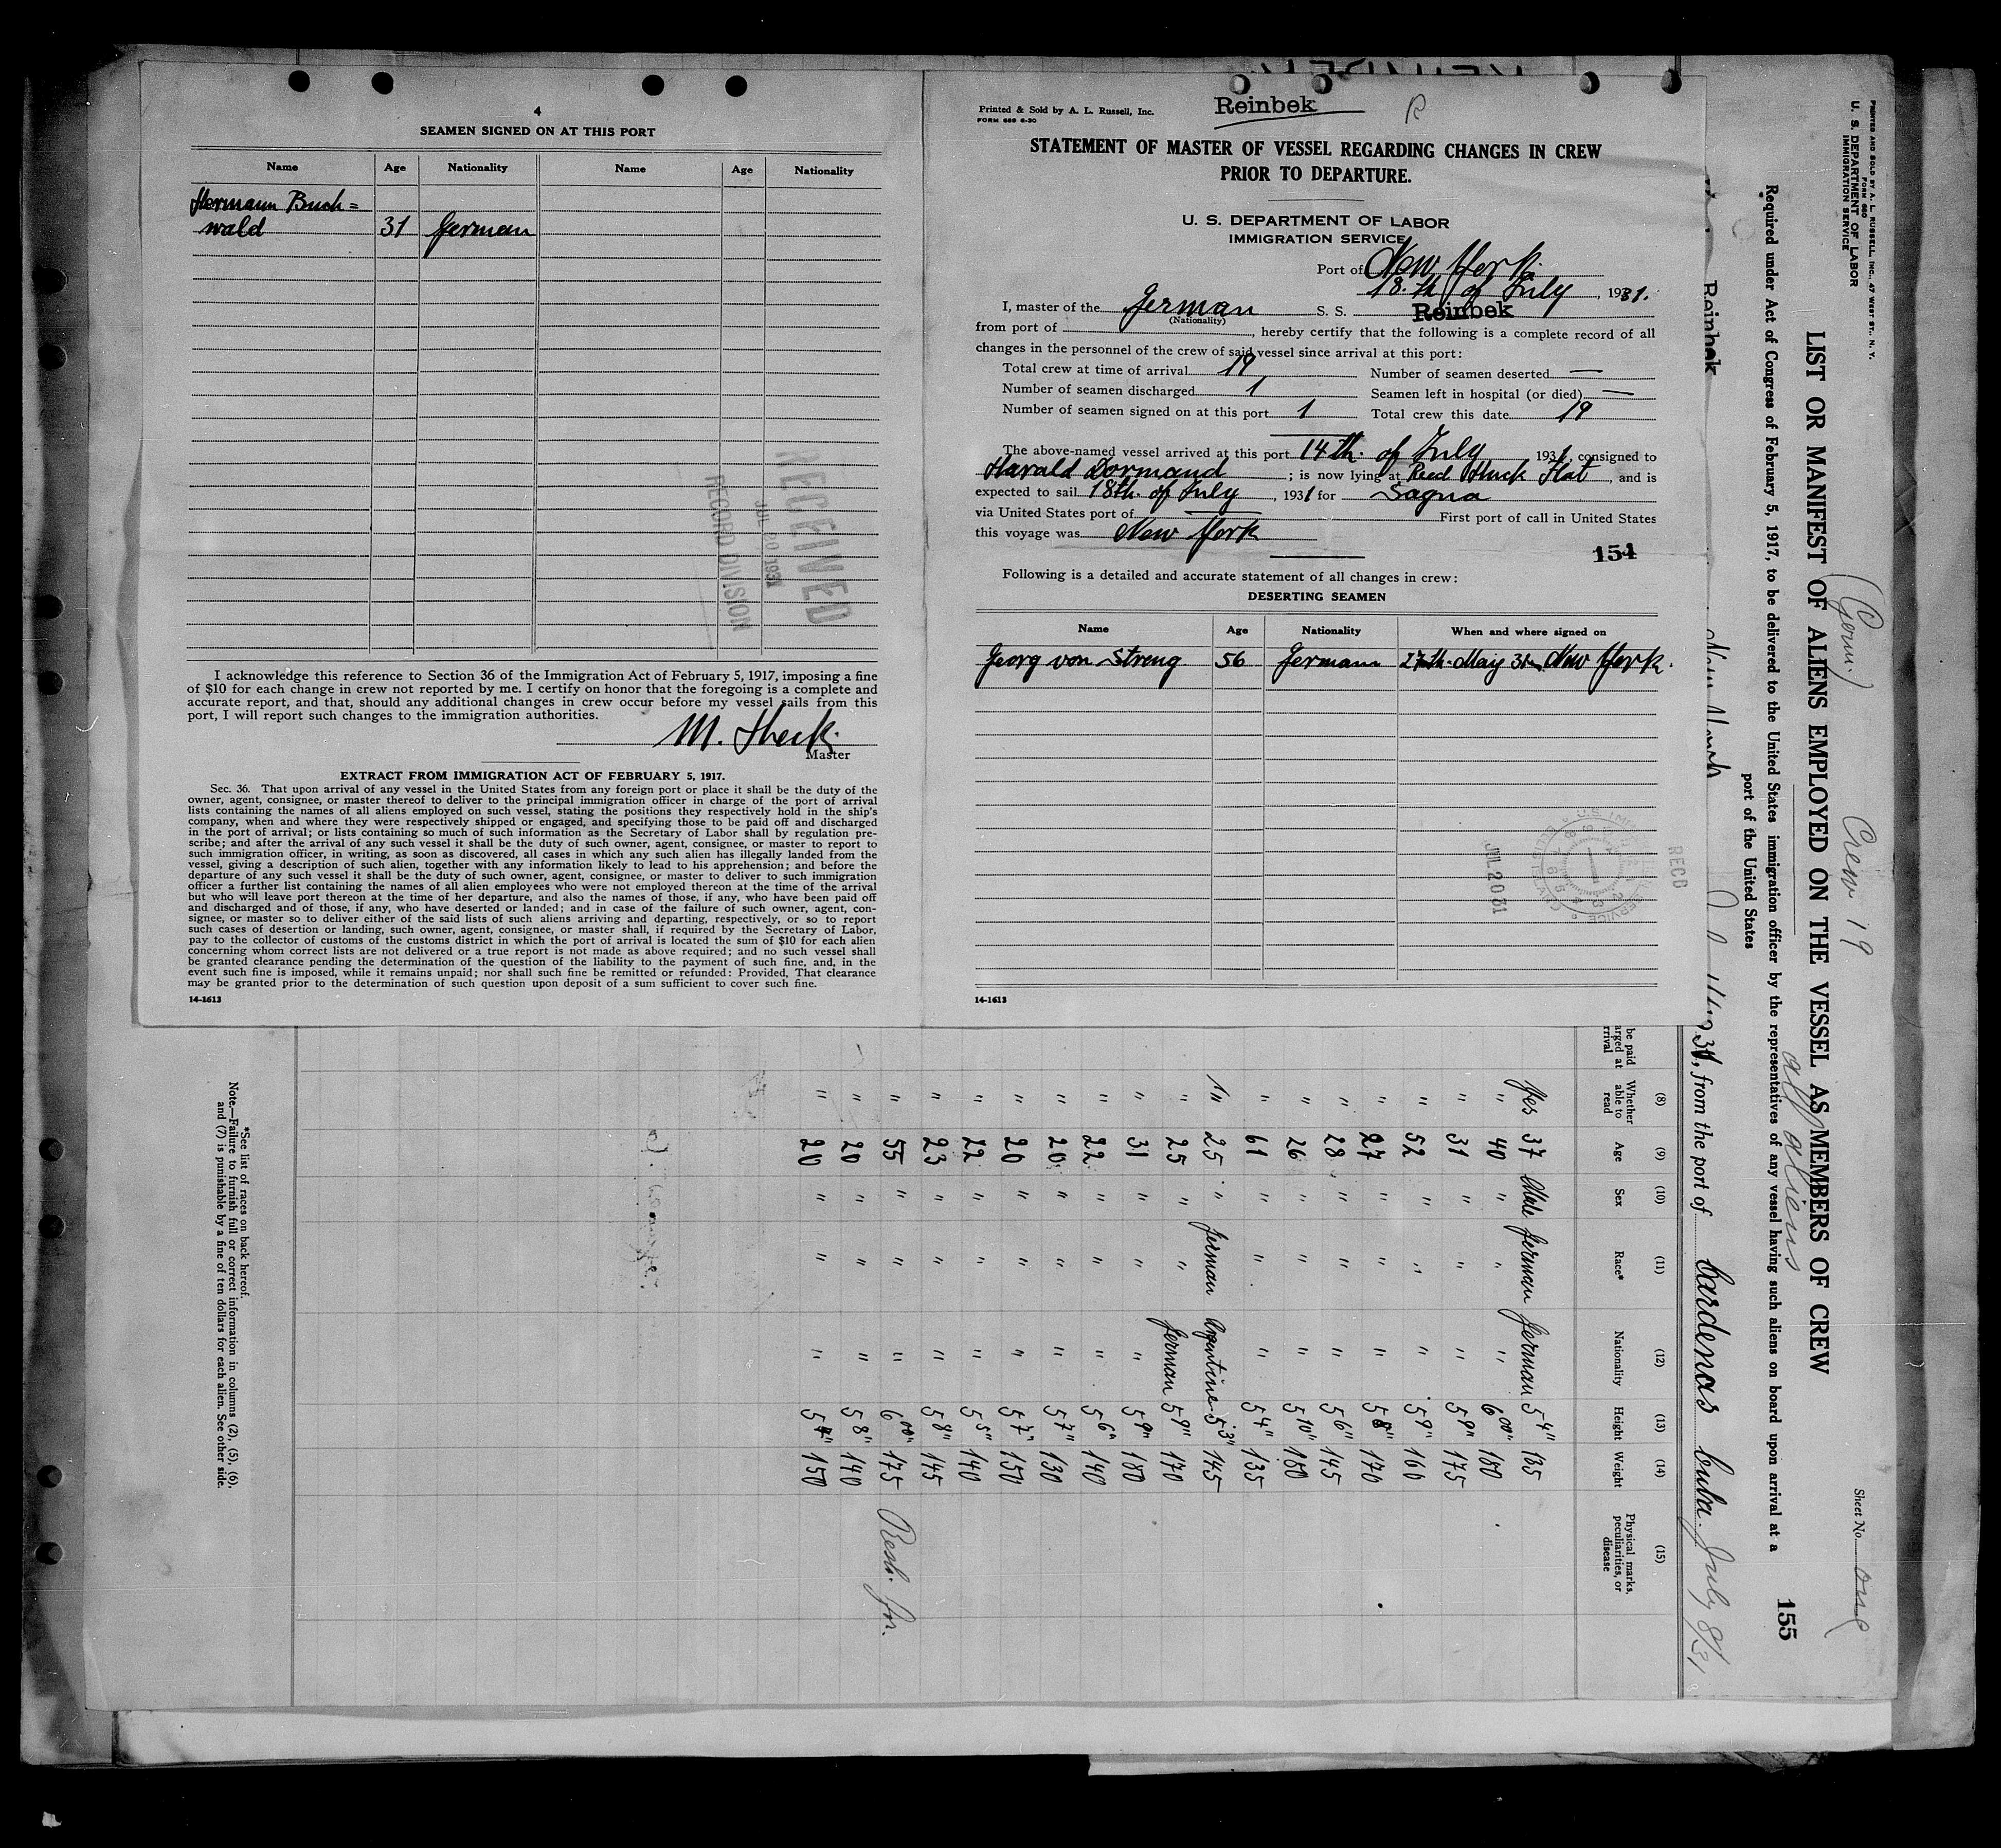 4
SEAMEN SIGNED ON AT THIS PORT
Name Age Nationality Name Age Nationality
Hermann Buch=
wald 31 German
RECEIVED
JUL 20 1931
RECORD DIVISION
I acknowledge this reference to Section 36 of the Immigration Act of February 5, 1917, imposing a fine
of $10 for each change in crew not reported by me. I certify on honor that the foregoing is a complete and
accurate report, and that, should any additional changes in crew occur before my vessel sails from this
port, I will report such changes to the immigration authorities.
M.
Master
EXTRACT FROM IMMIGRATION ACT OF FEBRUARY 5, 1917.
Sec. 36. That upon arrival of any vessel in the United States from any foreign port or place it shall be the duty of the
owner, agent, consignee, or master thereof to deliver to the principal immigration officer in charge of the port of arrival
lists containing the names of all aliens employed on such vessel, stating the positions they respectively hold in the ship's
company, when and where they were respectively shipped or engaged, and specifying those to be paid off and discharged
in the port of arrival; or lists containing so much of such information as the Secretary of Labor shall by regulation pre-
scribe; and after the arrival of any such vessel it shall be the duty of such owner, agent, consignee, or master to report to
such immigration officer, in writing, as soon as discovered, all cases in which any such alien has illegally landed from the
vessel, giving a description of such alien, together with any information likely to lead to his apprehension; and before the
departure of any such vessel it shall be the duty of such owner, agent, consignee, or master to deliver to such immigration
officer a further list containing the names of all alien employees who were not employed thereon at the time of the arrival
but who will leave port thereon at the time of her departure, and also the names of those, if any, who have been paid off
and discharged and of those, if any, who have deserted or landed; and in case of the failure of such owner, agent, con-
signee, or master so to deliver either of the said lists of such aliens arriving and departing, respectively, or so to report
such cases of desertion or landing, such owner, agent, consignee, or master shall, if required by the Secretary of Labor,
pay to the collector of customs of the customs district in which the port of arrival is located the sum of $10 for each alien
concerning whom correct lists are not delivered or a true report is not made as above required; and no such vessel shall
be granted clearance pending the determination of the question of the liability to the payment of such fine, and, in the
event such fine is imposed, while it remains unpaid; nor shall such fine be remitted or refunded: Provided, That clearance
may be granted prior to the determination of such question upon deposit of a sum sufficient to cover such fine.
14-1613
Printed & Sold by A. L. Russell, Inc.
FORM 689 6-30
Reinbek R
STATEMENT OF MASTER OF VESSEL REGARDING CHANGES IN CREW
PRIOR TO DEPARTURE.
U. S. DEPARTMENT OF LABOR
IMMIGRATION SERVICE
Port of New York.
18.th of July, 1931.
I, master of the German S. S. Reinbek
(Nationality)
from port of , hereby certify that the following is a complete record of all
changes in the personnel of the crew of said vessel since arrival at this port:
Total crew at time of arrival 19 Number of seamen deserted —
Number of seamen discharged 1 Seamen left in hospital (or died) —
Number of seamen signed on at this port 1 Total crew this date 19
The above-named vessel arrived at this port 14th. of July 1931, consigned to
Harald Dormand ; is now lying at Reed Huck Flat, and is
expected to sail 18th. of July, 1931 for Sagua
via United States port of First port of call in United States
this voyage was New York
154
Following is a detailed and accurate statement of all changes in crew:
DESERTING SEAMEN
Name Age Nationality When and where signed on
Georg von Streng 56 German 27th. May 31. New York.
JUL 20 31
RECD
14-1613
PRINTED AND SOLD BY A. L. RUSSELL, INC., 47 WEST ST., N. Y.
FORM 680
U. S. DEPARTMENT OF LABOR
IMMIGRATION SERVICE
(Germ.) Crew 19 all aliens
Sheet No. one
LIST OR MANIFEST OF ALIENS EMPLOYED ON THE VESSEL AS MEMBERS OF CREW
155
Required under Act of Congress of February 5, 1917, to be delivered to the United States immigration officer by the representatives of any vessel having such aliens on board upon arrival at a
port of the United States
Reinbek New York 1931, from the port of Cardenas Cuba. July 8/31
be paid
arged at
rrival
(8) (9) (10) (11) (12) (13) (14) (15)
Whether able to read Age Sex Race* Nationality Height Weight Physical marks, peculiarities, or disease
Yes 37 Male German German 5 4" 135
" 40 " " " 6 00" 180
" 31 " " " 5 9" 175
" 52 " " " 5 9" 160
" 27 " " " 5 8" 170
" 28 " " " 5 6" 145
" 26 " " " 5 10" 180
" 61 " " " 5 4" 135
" 25 " German Argentine 5 3" 145
" 25 " " German 5 9" 170
" 31 " " " 5 9" 180
" 22 " " " 5 6" 140
" 20 " " " 5 7" 130
" 20 " " " 5 7" 150
" 22 " " " 5 5" 140
" 23 " " " 5 8" 145
" 55 " " " 6 00" 175
" 20 " " " 5 8" 140
" 20 " " " 5 7" 150
*See list of races on back hereof.
Note.—Failure to furnish full or correct information in columns (2), (5), (6),
and (7) is punishable by a fine of ten dollars for each alien. See other side.